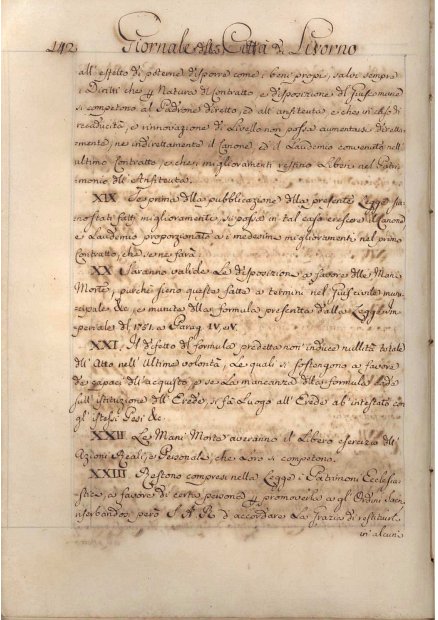 142 Giornale della Città di Livorno
all'effetto di poterne disporre come i beni propi, salvi sempre
i Diritti che p Natura di Contratto, e disposizione di Jus comune
si competono al Padrone diretto, ed all'enfiteuta, e che in caso di
recaducità, e rinnovazione di Livello non possa aumentarsi diretta-
mente, ne indirettamente il Canone, ed il Laudemio convenuto nell'
ultimo Contratto, e che i miglioramenti restino Liberi nel Patri-
monio dell'Enfiteuta.
XIX Se prima della pubblicazione della presente Legge sia-
no stati fatti miglioramenti, si possa in tal caso crescere il Canone
e Laudemio proporzionato a i medesimi miglioramenti nel primo
Contratto, che se ne farà.
XX Saranno valide Le disposizioni a favore delle Mani
Morte, purché sieno queste fatte a termini nel Jus civile muni-
cipale &c, e munite della formula prescritta dalla Legge im-
periale del 1751. a Parag. IV, e V.
XXI, Il difetto di formula predetta non induce nullità totale
dell'Atto nell'ultime volontà, Le quali si sostengono a favore
de capaci dell'acquisto, e se La mancanza della formula cade
sull'istituzione dell'Erede, si fà Luogo all'Erede ab intestato con
gl'istessi Pesi &c.
XXII Le Mani Morte averanno il Libero esercizio dell'
Azioni Reali, e Personali, che Loro si competono.
XXIII Restono compresi nella Legge i Patrimoni Ecclesia-
stici, a favore di certa persona p promoverla a gl'Ordini Sacri
riserbandosi però S. A. R. d'accordare La Grazia di restituirli
in alcuni